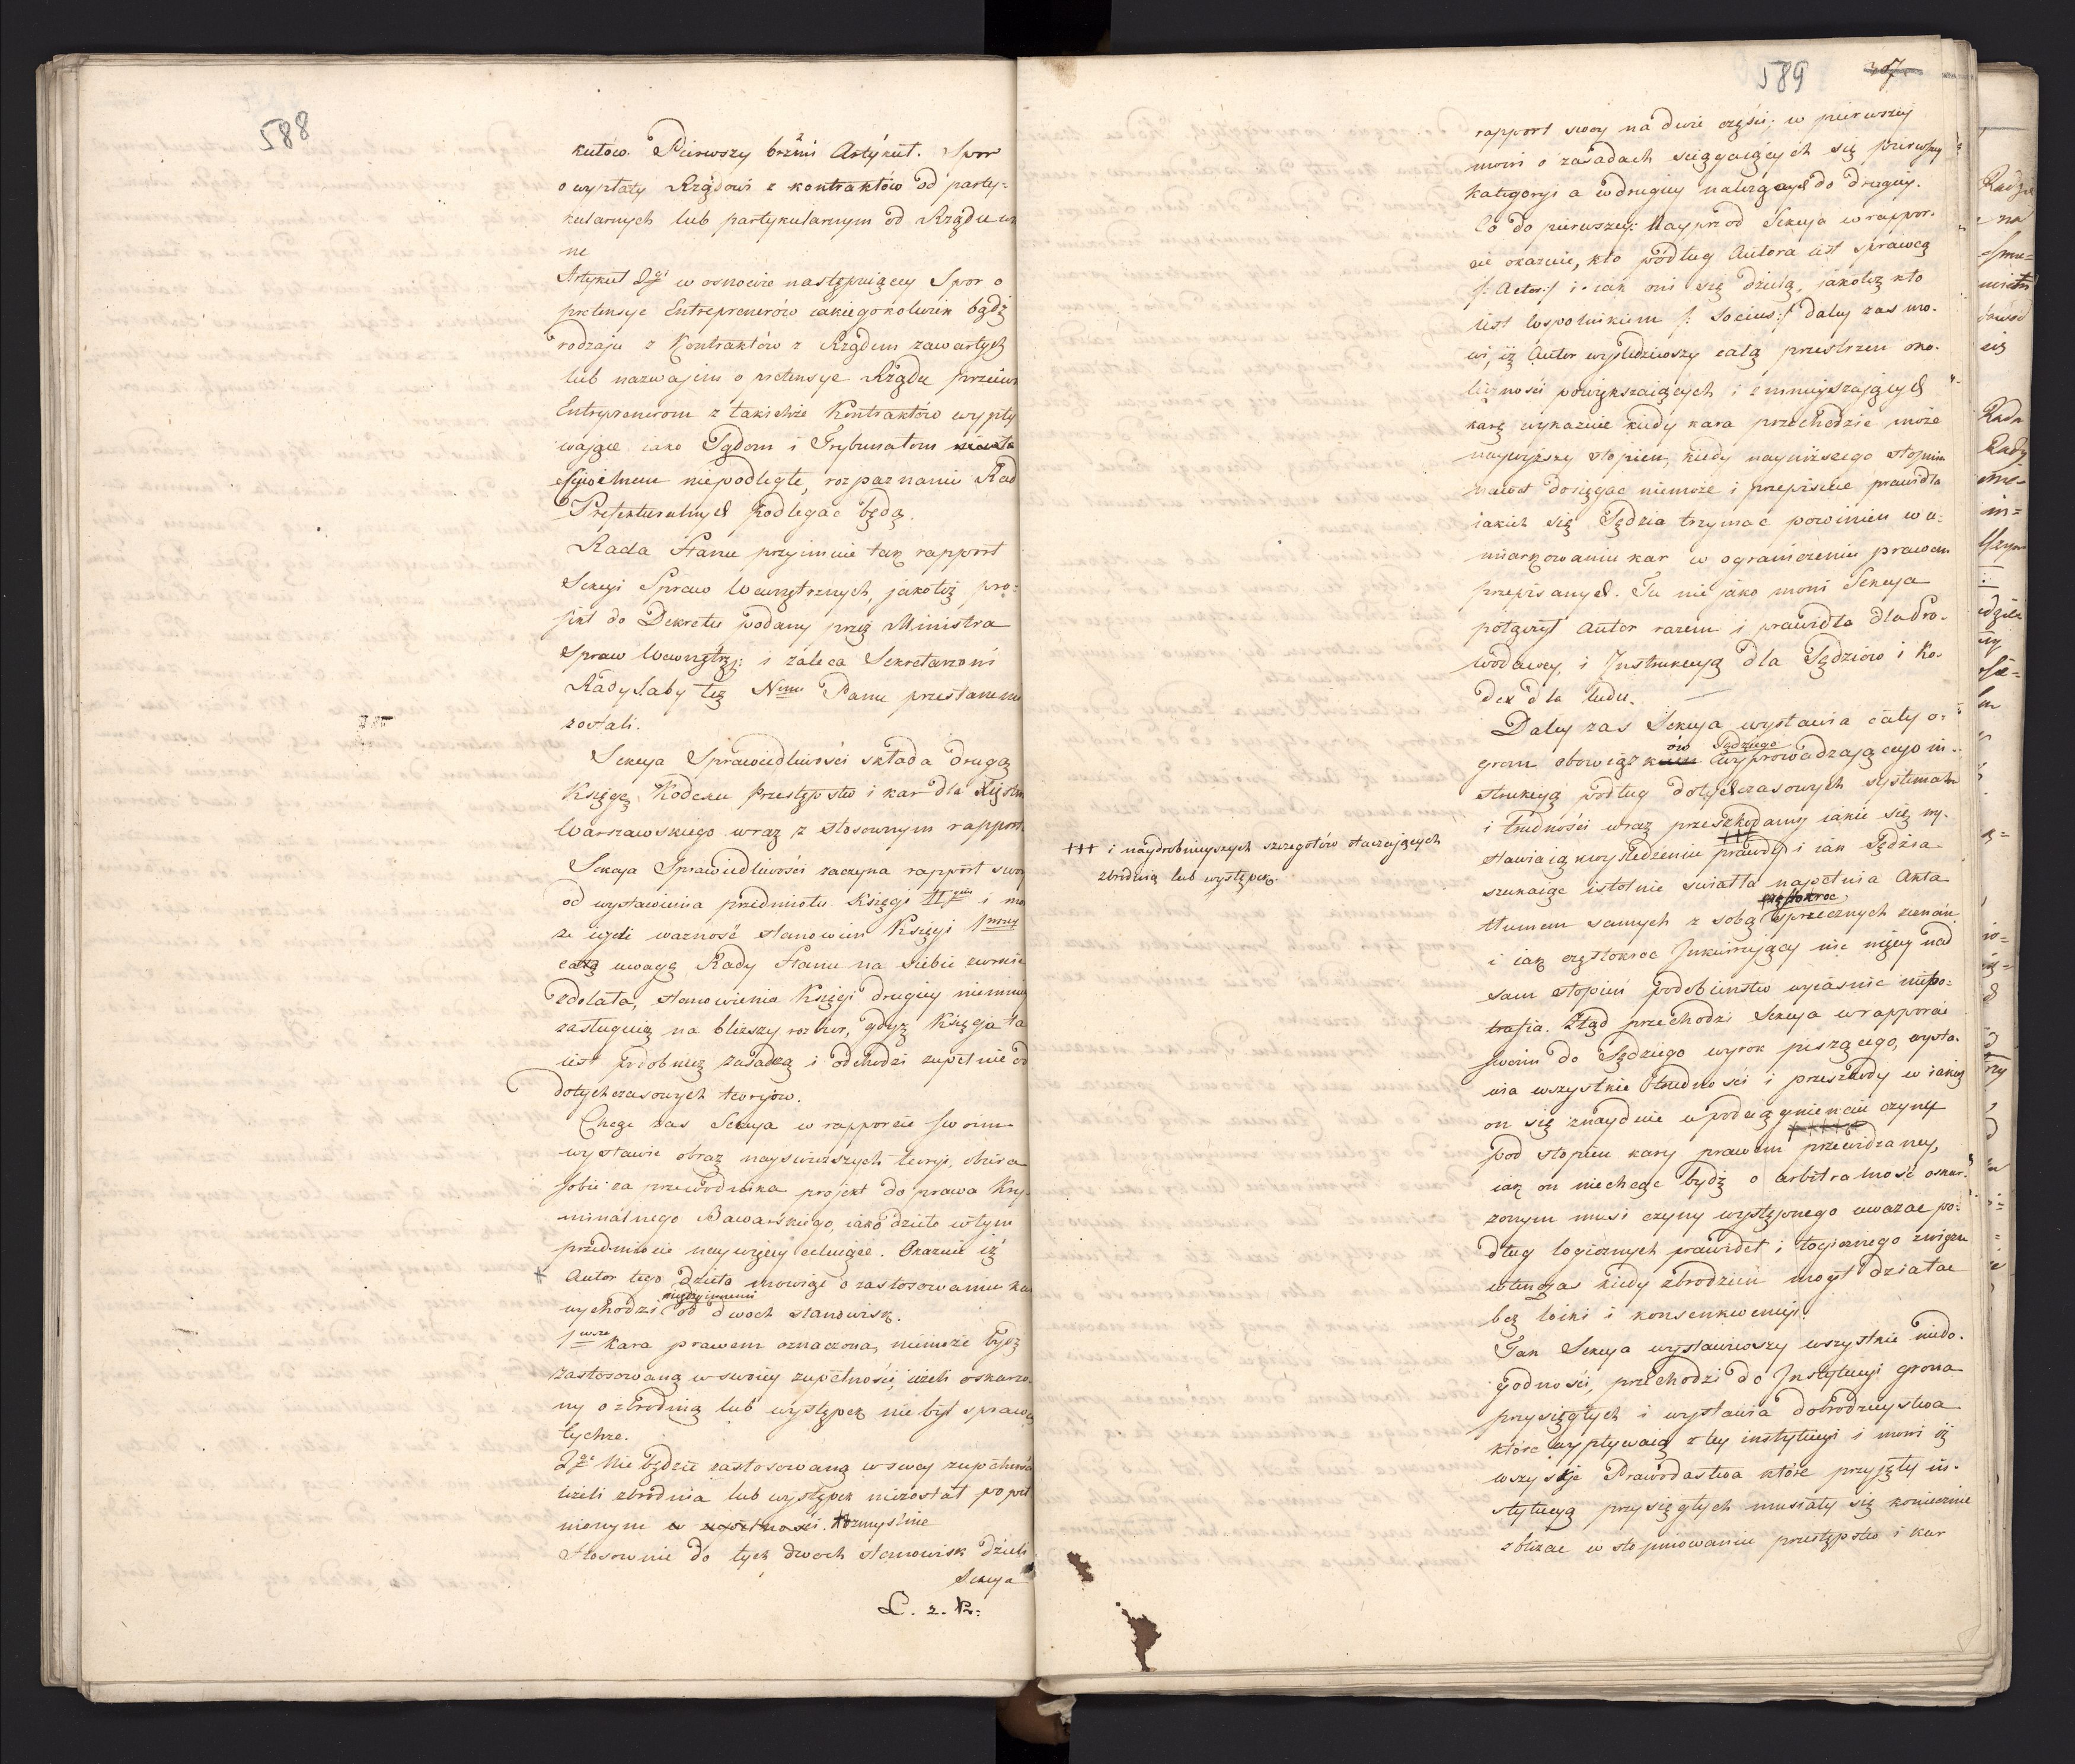 588
kułów. Pierwszy brzmi Artykuł. Spor
o wypłaty Rządowi z kontraktów od party=
kularnych lub partykularnym od Rządu
ne
Artykuł 2gi w osnowie następuiącey Spor o
pretensye Entreprenerów iakiegokolwiek bądź
rodzaju z Kontraktów z Rządem zawartych
lub nazwajem o pretensye Rządu przeciw
Entreprenerom z takichże Kontraktów wypły
waiące iako Sądom i Trybunałom
niepodległe, rozpaznaniu Rad
Prefekturalnych podlegać będą.
Rada Stanu przyimuie tak rapport
Sekcyi Spraw Wewnętrznych, jakoteż pro=
jekt do Dekretu podany przez Ministra
Spraw Wewnętrz: i zaleca Sekretarzowi
Rady, aby też Nmu Panu przesłanemi
zostali.
Sekcya Sprawiedliwości składa drugą
Księgę Kodexu Przestępstw i kar dla Xięstw
Warszawskiego wraz z stosownym rapport.
Sekcya Sprawiedliwości zaczyna rapport swoy
od wystawienia przedmiotu Księgi II i mo
że ieżeli ważność stanowien Księgi 1wszey
całą uwagę Rady Stanu na siebie zwrócić
zdołała, stanowienia Księgi drugiey niemniey
zasługuią na bliższy rozbior, gdyż Księga ta
iest podobnież zasadzą i odchodzi zupełnie od
dotychczasowych teoryow.
Chcąc zas Sekcya w rapporcie swoim
wystawić obraz nayswieższych teoryi, obiera
sobie za przewodnika projekt do prawa Kry
minalnego Bawarskiego, iako dzieło w tym
przedmiocie naywięcey celuiące. Okazuie iż
+ Autor tego dzieła mowiąc o zastosowaniu kar
międzyinnemi
wychodzi od dwoch stanowisk.
1wsze Kara prawem oznaczona, niemoże bydź
zastosowaną w swoiey zupełności, ieżeli oskarzo
ny o zbrodnią lub występek nie był sprawcą
tychże.
2gie Nie będzie zastosowaną w swey zupełności
ieżeli zbrodnia lub występek niezostał popeł
nionym w zupełności. Rozmyslnie
Stosownie do tych dwoch stanowisk dzieli
Sekcya
589
rapport swoy na dwie części; w pierwszey
mowi o zasadach sciągaiących się pierwszey
kategoryi a w drugiey należących do drugiey.
Co do pierwszey: Nayprzod Sekcya w rappor-
cie okazuie, kto podług Autora iest sprawcą
/: Actor :/ i iak oni się dzielą, jakoteż kto
iest wspolnikiem /: Socius :/ daley zas mo-
wi, iż Autor wysledziwszy całą przestrzen oko-
liczności powiększaiących i zmnieyszających
karę wykazuie kiedy kara przechodzić może
naywyższy stopien, kiedy nayniższego stopnia
nawet dosięgać niemoże i przepisuie prawidła
iakich się Sędzia trzymać powinien w u=
miarkowaniu kar w ograniczeniu prawem
przepisanych. Tu nie jako mowi Sekcya
połączył Autor razem i prawidła dla Pra-
wodawcy, i Instrukcyą dla Sędziow i Ko-
dex dla ludu.
Daley zas Sekcya wystawia cały o-
ów Sędziego
grom obowiązk wyprowadzającego in-
strukcyą podług dotychczasowych systematów
i trudności wraz przeszkodamy iakie się wy-
+++
stawiaią w wysledzeniu prawdy i iak Sędzia
+++ i naydrobnieyszych szczegołów otaczających
zbrodnią lub występek.
szukaiąc istotnie swiatła napełnia Akta
częstokroc
tłumem samych z sobą sprzecznych zeznań
i iak częstokroc Inkwiruiący nic więcey nad
sam stopień podobieństwa wyiasnić niepo=
trafia. Ztąd przechodzi Sekcya w rapporcie
swoim do Sędziego wyrok piszącego, wysta-
wia wszystkie trudności i przeszkody w iakiey
on się znayduie w podciągnieniu czynu
pod stopien kary prawem przewidzaney,
iak on niechcąc bydź o arbitralność oskar-
zonym musi czyny występnego uważać po-
dług logicznych prawideł i logicznego związku
wtenczas kiedy zbrodzień mogł działać
bez loiki i konsenkwencyi.
Tak Sekcya wystawiwszy wszystkie niedo-
godności, przechodzi do Instytucyi grona
przysięgłych i wystawia dobrodzieystwa
ktore wypływaią z tey instytucyi i mowi iż
wszystkie Prawodastwa ktore przyjęły in-
stytucyą przysięgłych musiały się koniecznie
zbliżać w stopniowaniu przestępstw i kar